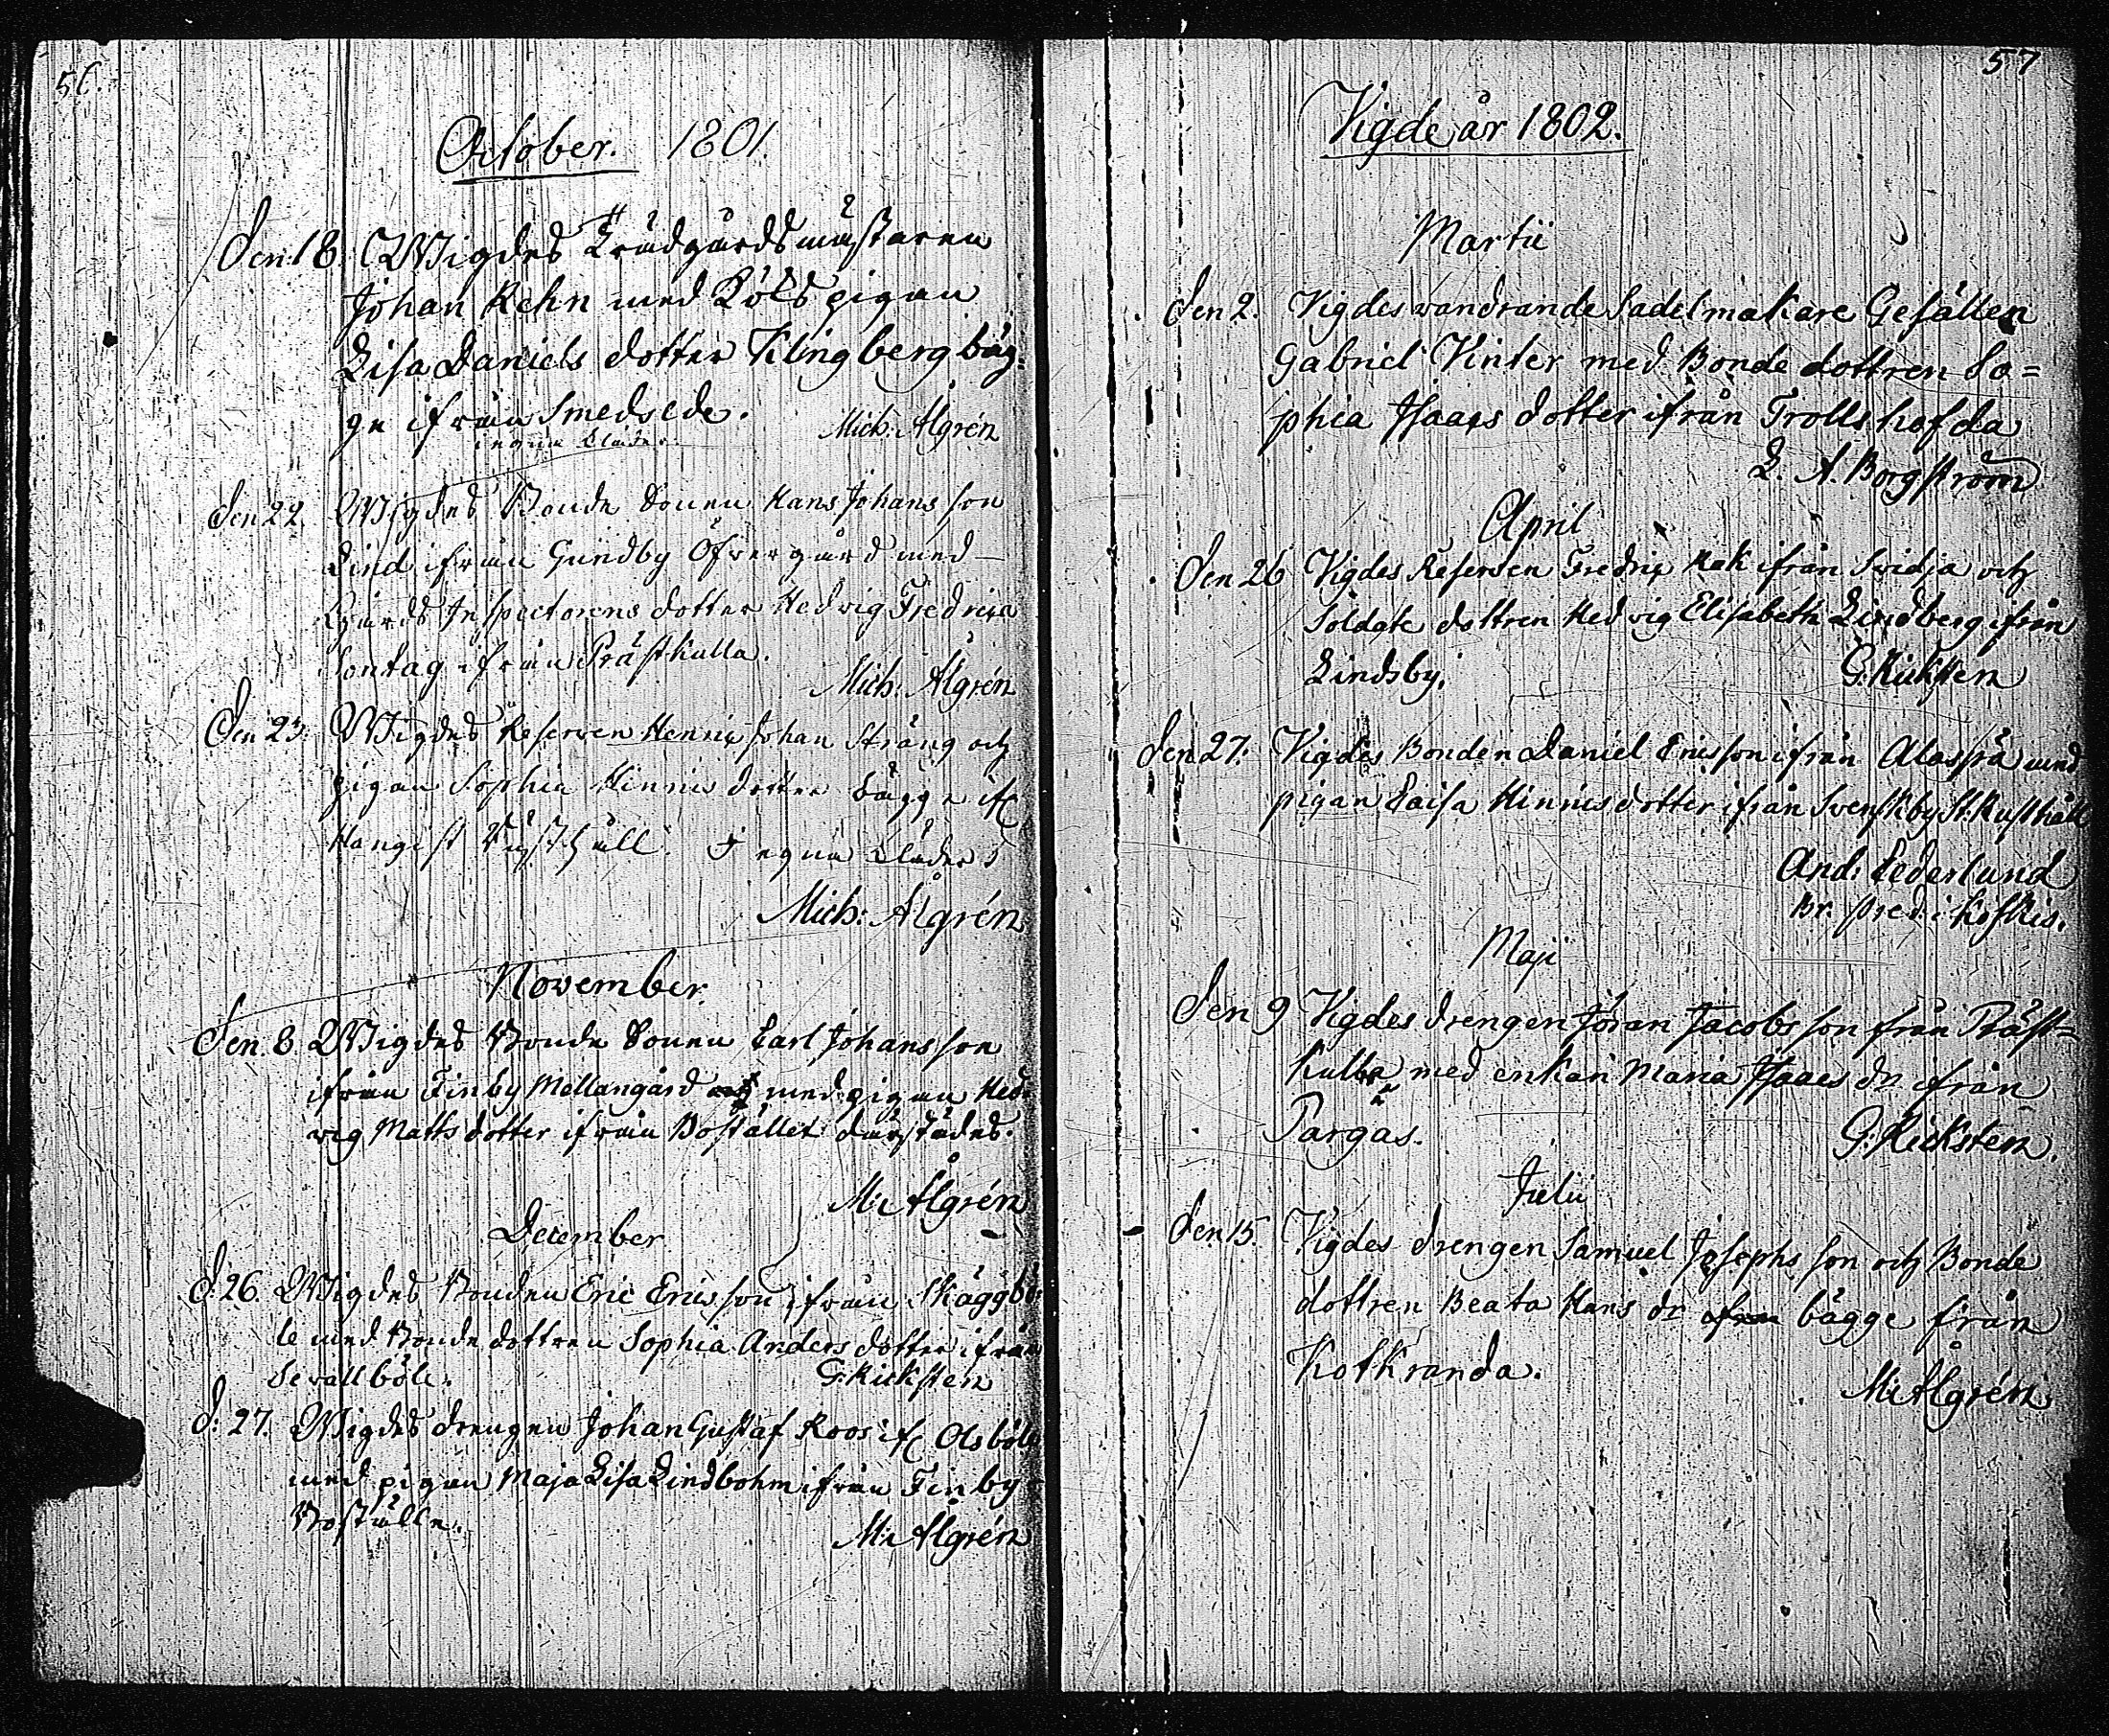 56.
October. 1801
Den 18. Wigdes Trädgårdsmästaren
Johan Rehn med Kökspigan
Lisa Daniels dotter Klingberg båg-
ge ifrån Smedsede.
i egna kläder.
Mich: Ålgrén
Den 22. Wigdes Bonde Sonen Hans Johans son
Lind ifrån Gundby Öfvergård med
Gårds Inspectorens dotter Hedvig Fredrica
Sontag ifrån Prästkulla.
Mich: Ålgrén
Den 23. Wigdes Reserven Henric Johan Sträng och
pigan Sophia Hinrics dotter bägge ifr
Hangist Rusthåll. I egna kläder
Mich: Ålgrén
November.
Den 8. Wigdes Bonde Sonen Carl Johans son
ifrån Finby Mellangård med pigan Hed-
vig Matts dotter ifrån Bostället därstädes.
M: Ålgrén
December
d. 26. Wigdes Bonden Eric Ericsson ifrån Skäggbö-
le med Bonde dottren Sophia Anders dotter ifrån
Sevallböle.
G: Ricksten
d. 27. Wigdes drengen Johan Gustaf Roos ifr Olsböle
med pigan Maja Lisa Lindbohm ifrån Finby
Boställe.
M: Ålgrén
57
Vigde år 1802.
Martii
Den 2. Vigdes vandrande Sadelmakare Gesällen
Gabriel Vinter med Bonde dottren So=
phia Isaacs dotter ifrån Trollshofda
L. A. Borgström
April
Den 26 Vigdes Reserven Fredric Rak ifrån Svidja och
Soldate dottren Hedvig Elisabeth Lindberg ifrån
Lindsby.
G: Ricksten
Den 27. Vigdes Bonden Daniel Ericsson ifrån Alasprä med
pigan Caisa Hinricsdotter ifrån Svenskby St: Rusthåll
And: Cederlund
Br. pred: i Koskis.
Maji
Den 9 Vigdes drengen Jöran Jacobs son från Präst-
kulla med enkan Maria Isaacs dr ifrån
Pargas.
G: Rickstén.
Julii
Den 15. Vigdes drengen Samuel Josephs son och Bonde
dottren Beata Hans dr bägge från
Kotkranda.
M: Ålgrén